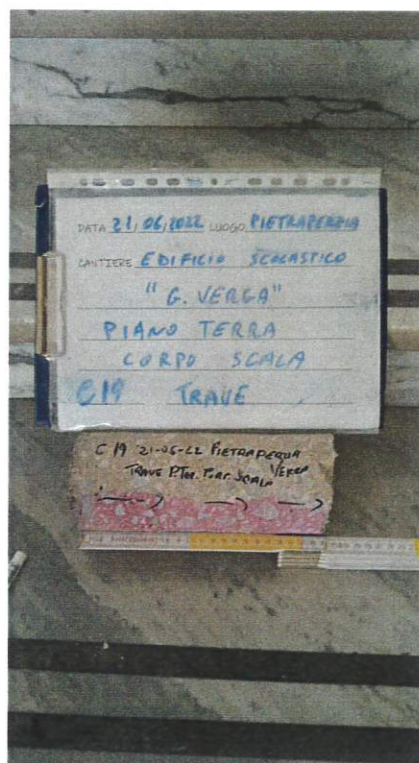 DATA 21/06/2022 LUOGO PIETRAPERZIA
CANTIERE EDIFICIO SCOLASTICO
"G. VERGA"
PIANO TERRA
CORPO SCALA
C19 TRAVE
C 19 21-06-22 PIETRAPERZIA
TRAVE P.Ter. SCALA VERGA